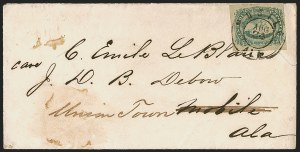 C. Emile LeBlanc
care J. D. B. Debow
Union Town Mobile
Ala